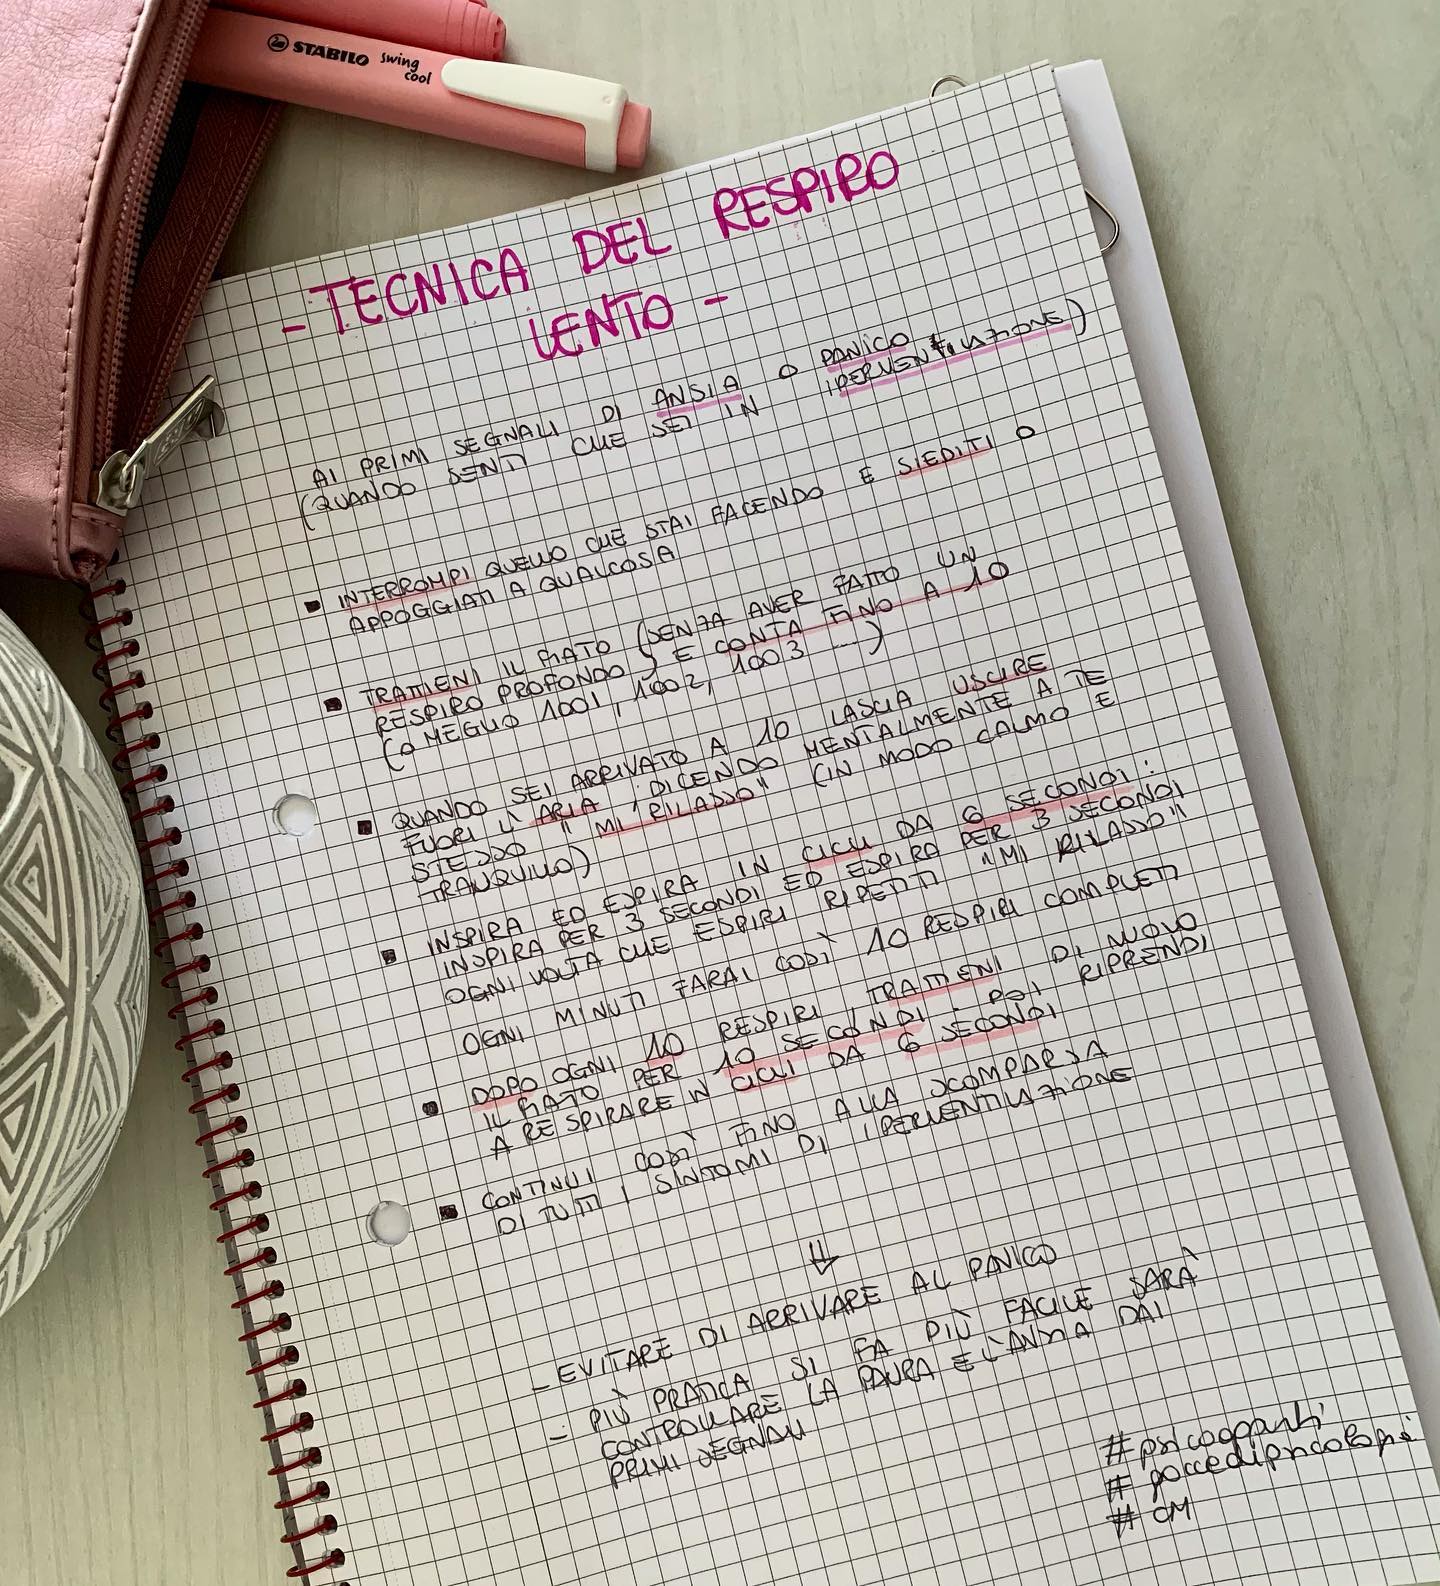 STABILO swing
cool
- TECNICA DEL RESPIRO
LENTO -
AI PRIMI SEGNALI DI ANSIA O PANICO
(QUANDO SENTI CHE SEI IN IPERVENTILAZIONE)
▪ INTERROMPI QUELLO CHE STAI FACENDO E SIEDITI O
APPOGGIATI A QUALCOSA
▪ TRATTIENI IL FIATO (SENZA AVER FATTO UN
RESPIRO PROFONDO) E CONTA FINO A 10
(O MEGLIO 1001, 1002, 1003 ...)
▪ QUANDO SEI ARRIVATO A 10 LASCIA USCIRE
FUORI L' ARIA, DICENDO MENTALMENTE A TE
STESSO "MI RILASSO" (IN MODO CALMO E
TRANQUILLO)
▪ INSPIRA ED ESPIRA IN CICLI DA 6 SECONDI:
INSPIRA PER 3 SECONDI ED ESPIRA PER 3 SECONDI
OGNI VOLTA CHE ESPIRI RIPETITI "MI RILASSO"
OGNI MINUTI FARAI COSÌ 10 RESPIRI COMPLETI
▪ DOPO OGNI 10 RESPIRI, TRATTIENI DI NUOVO
IL FIATO PER 10 SECONDI: POI RIPRENDI
A RESPIRARE IN CICLI DA 6 SECONDI
▪ CONTINUI COSÌ FINO ALLA SCOMPARSA
DI TUTTI I SINTOMI DI IPERVENTILAZIONE
⇓
- EVITARE DI ARRIVARE AL PANICO
- PIÙ PRATICA SI FA PIÙ FACILE SARÀ
CONTROLLARE LA PAURA E L'ANSIA DAI
PRIMI SEGNALI
#psicoappunti
#goccedipsicologia
#CM